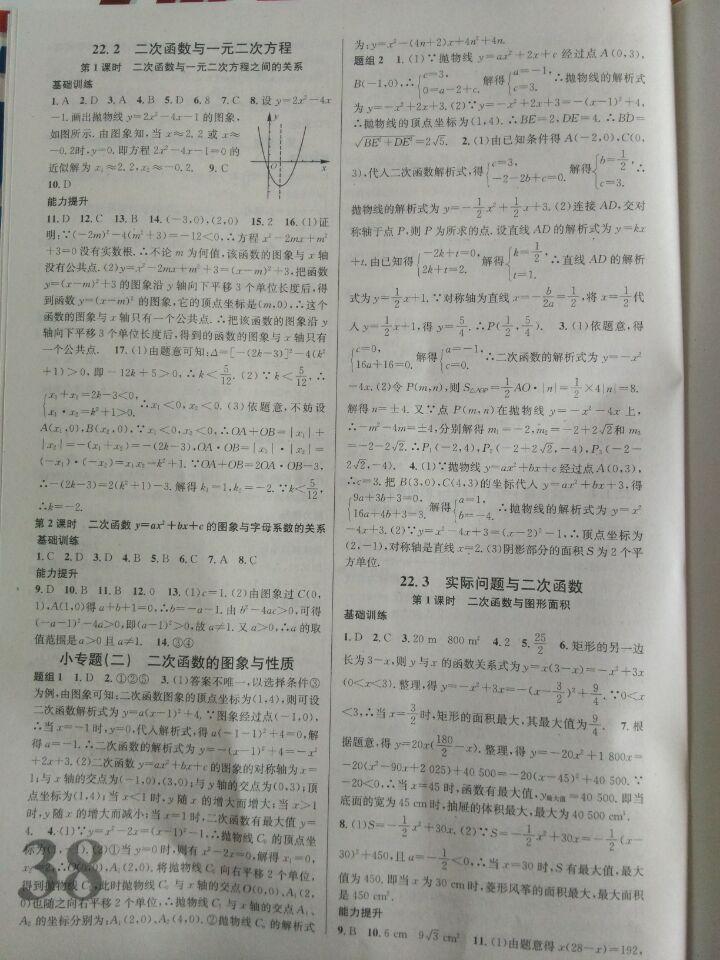 22.2 二次函数与一元二次方程
第1课时 二次函数与一元二次方程之间的关系
基础训练
1. A 2. D 3. A 4. B 5. D 6. 8 7. C 8. 设 y=2x²-4x
-1. 画出抛物线 y=2x²-4x-1 的图象,
如图所示. 由图象知, 当 x≈2.2 或 x≈
-0.2时, y=0. 即方程 2x²-4x-1=0 的
近似解为 x₁≈2.2, x₂≈-0.2. 9. C
10. D
y
O
x
能力提升
11. D 12. C 13. B 14. (-3,0),(2,0) 15. 2 16. (1)证
明:∵(-2m)²-4(m²+3)=-12<0,∴方程 x²-2mx+m²
+3=0 没有实数根.∴不论 m 为何值, 该函数的图象与 x 轴
没有公共点. (2)y=x²-2mx+m²+3=(x-m)²+3, 把函数
y=(x-m)²+3 的图象沿 y 轴向下平移 3 个单位长度后, 得
到函数 y=(x-m)² 的图象, 它的顶点坐标是(m,0),∴这个
函数的图象与 x 轴只有一个公共点.∴把该函数的图象沿 y
轴向下平移 3 个单位长度后, 得到的函数的图象与 x 轴只有
一个公共点. 17. (1)由题意可知:Δ=[-(2k-3)]²-4(k²
+1)>0, 即-12k+5>0,∴k<5/12. (2)∵k<5/12,∴
{x₁+x₂=2k-3<0, x₁·x₂=k²+1>0. ∴x₁<0,x₂<0. (3)依题意, 不妨设
A(x₁,0),B(x₂,0),∵x₁<0,x₂<0,∴OA+OB=|x₁|+
|x₂|=-(x₁+x₂)=-(2k-3),OA·OB=|x₁|·|x₂|=
(-x₁)·(-x₂)=x₁x₂=k²+1.∵OA+OB=2OA·OB-3,
∴-(2k-3)=2(k²+1)-3. 解得 k₁=1,k₂=-2.∵k<5/12,
∴k=-2.
第2课时 二次函数 y=ax²+bx+c 的图象与字母系数的关系
基础训练
1. C 2. D 3. D 4. B 5. C 6. C 7. A 8. C
能力提升
9. D 10. B 11. B 12. 0 13. (1)c=1. (2)由图象过 C(0,
1),A(1,0)得 a+b+1=0,∴b=-a-1. 由 b²-4ac>0, 可得
(-a-1)²-4a>0, 即(a-1)²>0, 故 a≠1. 又 a>0,∴a 的取
值范围是 a>0 且 a≠1. 14. ③④
小专题(二) 二次函数的图象与性质
题组1 1. D 2. ①②⑤ 3. (1)答案不唯一, 以选择条件③
为例, 由图象可知:二次函数图象的顶点坐标为(1,4), 则可设
二次函数解析式为 y=a(x-1)²+4,∵图象经过点(-1,0),
∴当 x=-1 时, y=0, 代入解析式, 得 a(-1-1)²+4=0, 解
得 a=-1.∴二次函数的解析式为 y=-(x-1)²+4=-x²
+2x+3. (2)二次函数 y=ax²+bx+c 的图象的对称轴为 x=
1;与 x 轴的交点为(-1,0),(3,0);与 y 轴的交点为(0,3);顶
点坐标为(1,4);当 x<1 时, y 随 x 的增大而增大;当 x>1
时, y 随 x 的增大而减小;当 x=1 时, 二次函数有最大值 y=
4. 4. (1)∵y=x²-2x=(x-1)²-1,∴抛物线 C₀ 的顶点坐
标为(1,-1). (2)①当 y=0 时, 则有 x²-2x=0, 解得 x₁=0,
x₂=2,∴O(0,0),A₁(2,0). 将抛物线 C₀ 向右平移 2 个单位,
得到抛物线 C₁, 此时抛物线 C₀ 与 x 轴的交点 O(0,0),A₁(2,
0)也随之向右平移 2 个单位,∴抛物线 C₁ 与 x 轴的交点 A₁、
A₂ 的坐标分别为:A₁(2,0)、A₂(4,0). ②抛物线 Cₙ 的解析式
38
为:y=x²-(4n+2)x+4n²+4n.
题组2 1. (1)∵抛物线 y=ax²+2x+c 经过点 A(0,3),
B(-1,0),∴{c=3, 0=a-2+c. 解得{a=-1, c=3. ∴抛物线的解析式
为 y=-x²+2x+3. (2)∵y=-x²+2x+3=-(x-1)²+4,
∴抛物线的顶点坐标为(1,4).∴BE=2,DE=4.∴BD=
√(BE²+DE²)=2√5. 2. (1)由已知条件得 A(-2,0),C(0,
3), 代入二次函数解析式, 得{c=3, -2-2b+c=0. 解得{b=1/2, c=3. ∴
抛物线的解析式为 y=-1/2x²+1/2x+3. (2)连接 AD, 交对
称轴于点 P, 则 P 为所求的点. 设直线 AD 的解析式为 y=kx
+t. 由已知得{-2k+t=0, 2k+t=2. 解得{k=1/2, t=1. ∴直线 AD 的解析
式为 y=1/2x+1.∵对称轴为直线 x=-b/2a=1/2, 将 x=1/2代
入 y=1/2x+1, 得 y=5/4.∴P(1/2,5/4). 3. (1)依题意, 得
{c=0, 16a+16=0. 解得{a=-1, c=0. ∴二次函数的解析式为 y=-x²
-4x. (2)令 P(m,n), 则 S△AOP=1/2AO·|n|=1/2×4|n|=8.
解得 n=±4. 又∵点 P(m,n)在抛物线 y=-x²-4x 上,
∴-m²-4m=±4, 分别解得 m₁=-2,m₂=-2+2√2和 m₃
=-2-2√2.∴P₁(-2,4),P₂(-2+2√2,-4),P₃(-2-
2√2,-4). 4. (1)∵抛物线 y=ax²+bx+c 经过点 A(0,3),
∴c=3. 把 B(3,0),C(4,3)的坐标代入 y=ax²+bx+3, 得
{9a+3b+3=0, 16a+4b+3=3. 解得{a=1, b=-4. ∴抛物线的解析式为 y=x²
-4x+3. (2)∵y=x²-4x+3=(x-2)²-1,∴顶点坐标为
(2,-1), 对称轴是直线 x=2. (3)阴影部分的面积 S 为 2 个平
方单位.
22.3 实际问题与二次函数
第1课时 二次函数与图形面积
基础训练
1. D 2. C 3. 20 m 800 m² 4. 2 5. 25/2 6. 矩形的另一边
长为 3-x, 则 y 与 x 的函数关系式为 y=x(3-x)=-x²+3x
(0<x<3). 整理, 得 y=-x²+3x=-(x-3/2)²+9/4.∵0<x
<3,∴当 x=3/2时, 矩形的面积最大, 其最大值为9/4. 7. 根
据题意, 得 y=20x(180/2-x). 整理, 得 y=-20x²+1 800x=
-20(x²-90x+2 025)+40 500=-20(x-45)²+40 500.∵
-20<0,∴当 x=45 时, 函数有最大值, y最大值=40 500. 即当
底面的宽为 45 cm 时, 抽屉的体积最大, 最大为 40 500 cm³.
8. (1)S=-1/2x²+30x. (2)∵S=-1/2x²+30x=-1/2(x-
30)²+450, 且 a=-1/2<0,∴当 x=30 时, S 有最大值, 最大
值为 450. 即当 x 为 30 cm 时, 菱形风筝的面积最大, 最大面积
是 450 cm².
能力提升
9. B 10. 6 cm 9√3 cm² 11. (1)由题意得 x(28-x)=192,